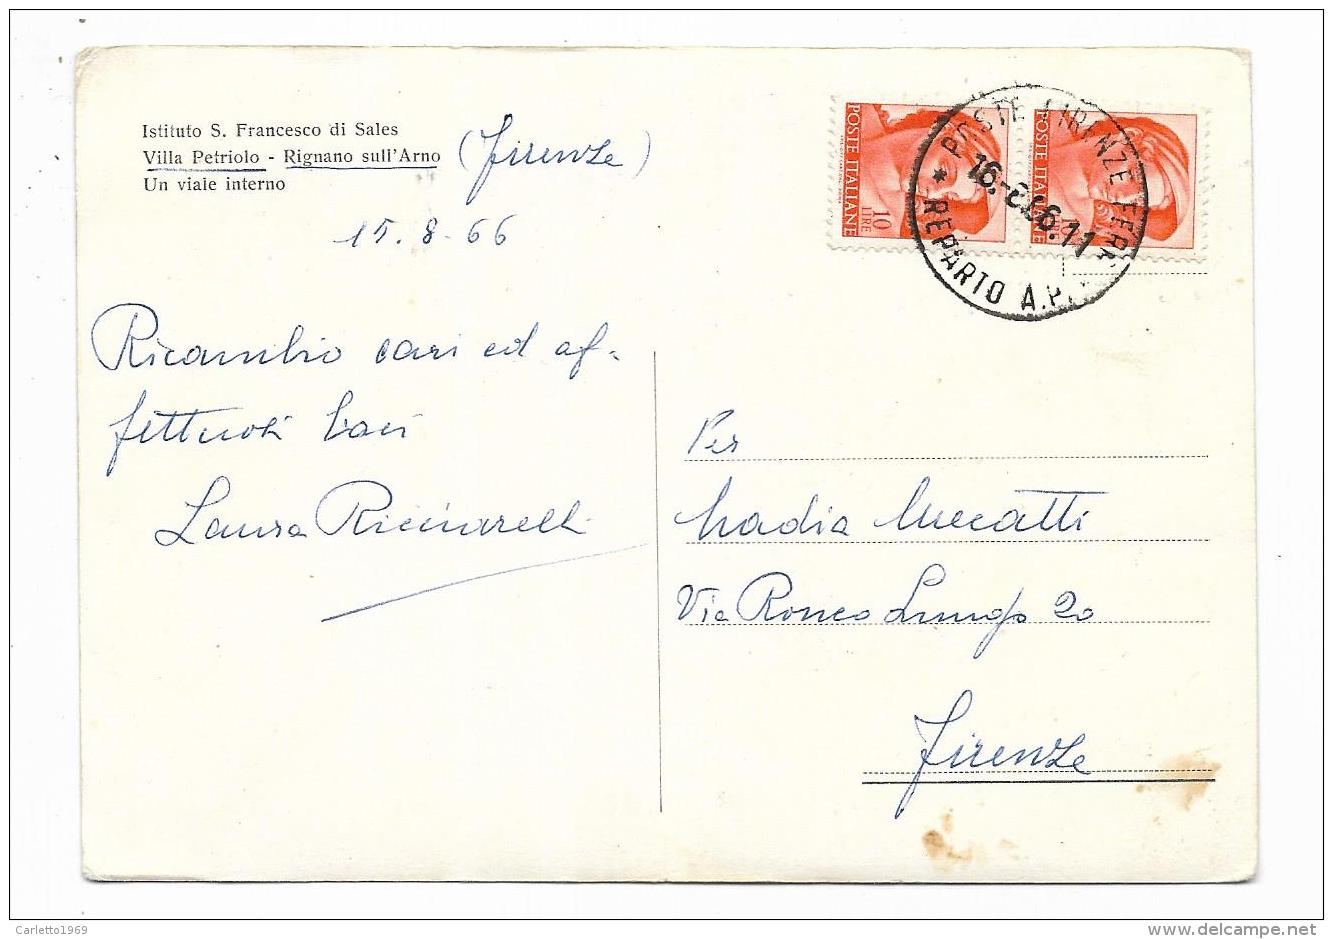 Istituto S. Francesco di Sales
Villa Petriolo - Rignano sull'Arno (Firenze)
Un viale interno
15.8.66
Ricambio cari ed af-
fettuosi baci
Laura Ricciarelli
POSTE ITALIANE
10
LIRE
POSTE ITALIANE
POSTE FIRENZE FERR
REPARTO A.P.
Per
Nadia
Via Ronco Lungo 20
Firenze
Carletto1969
delcampe.net